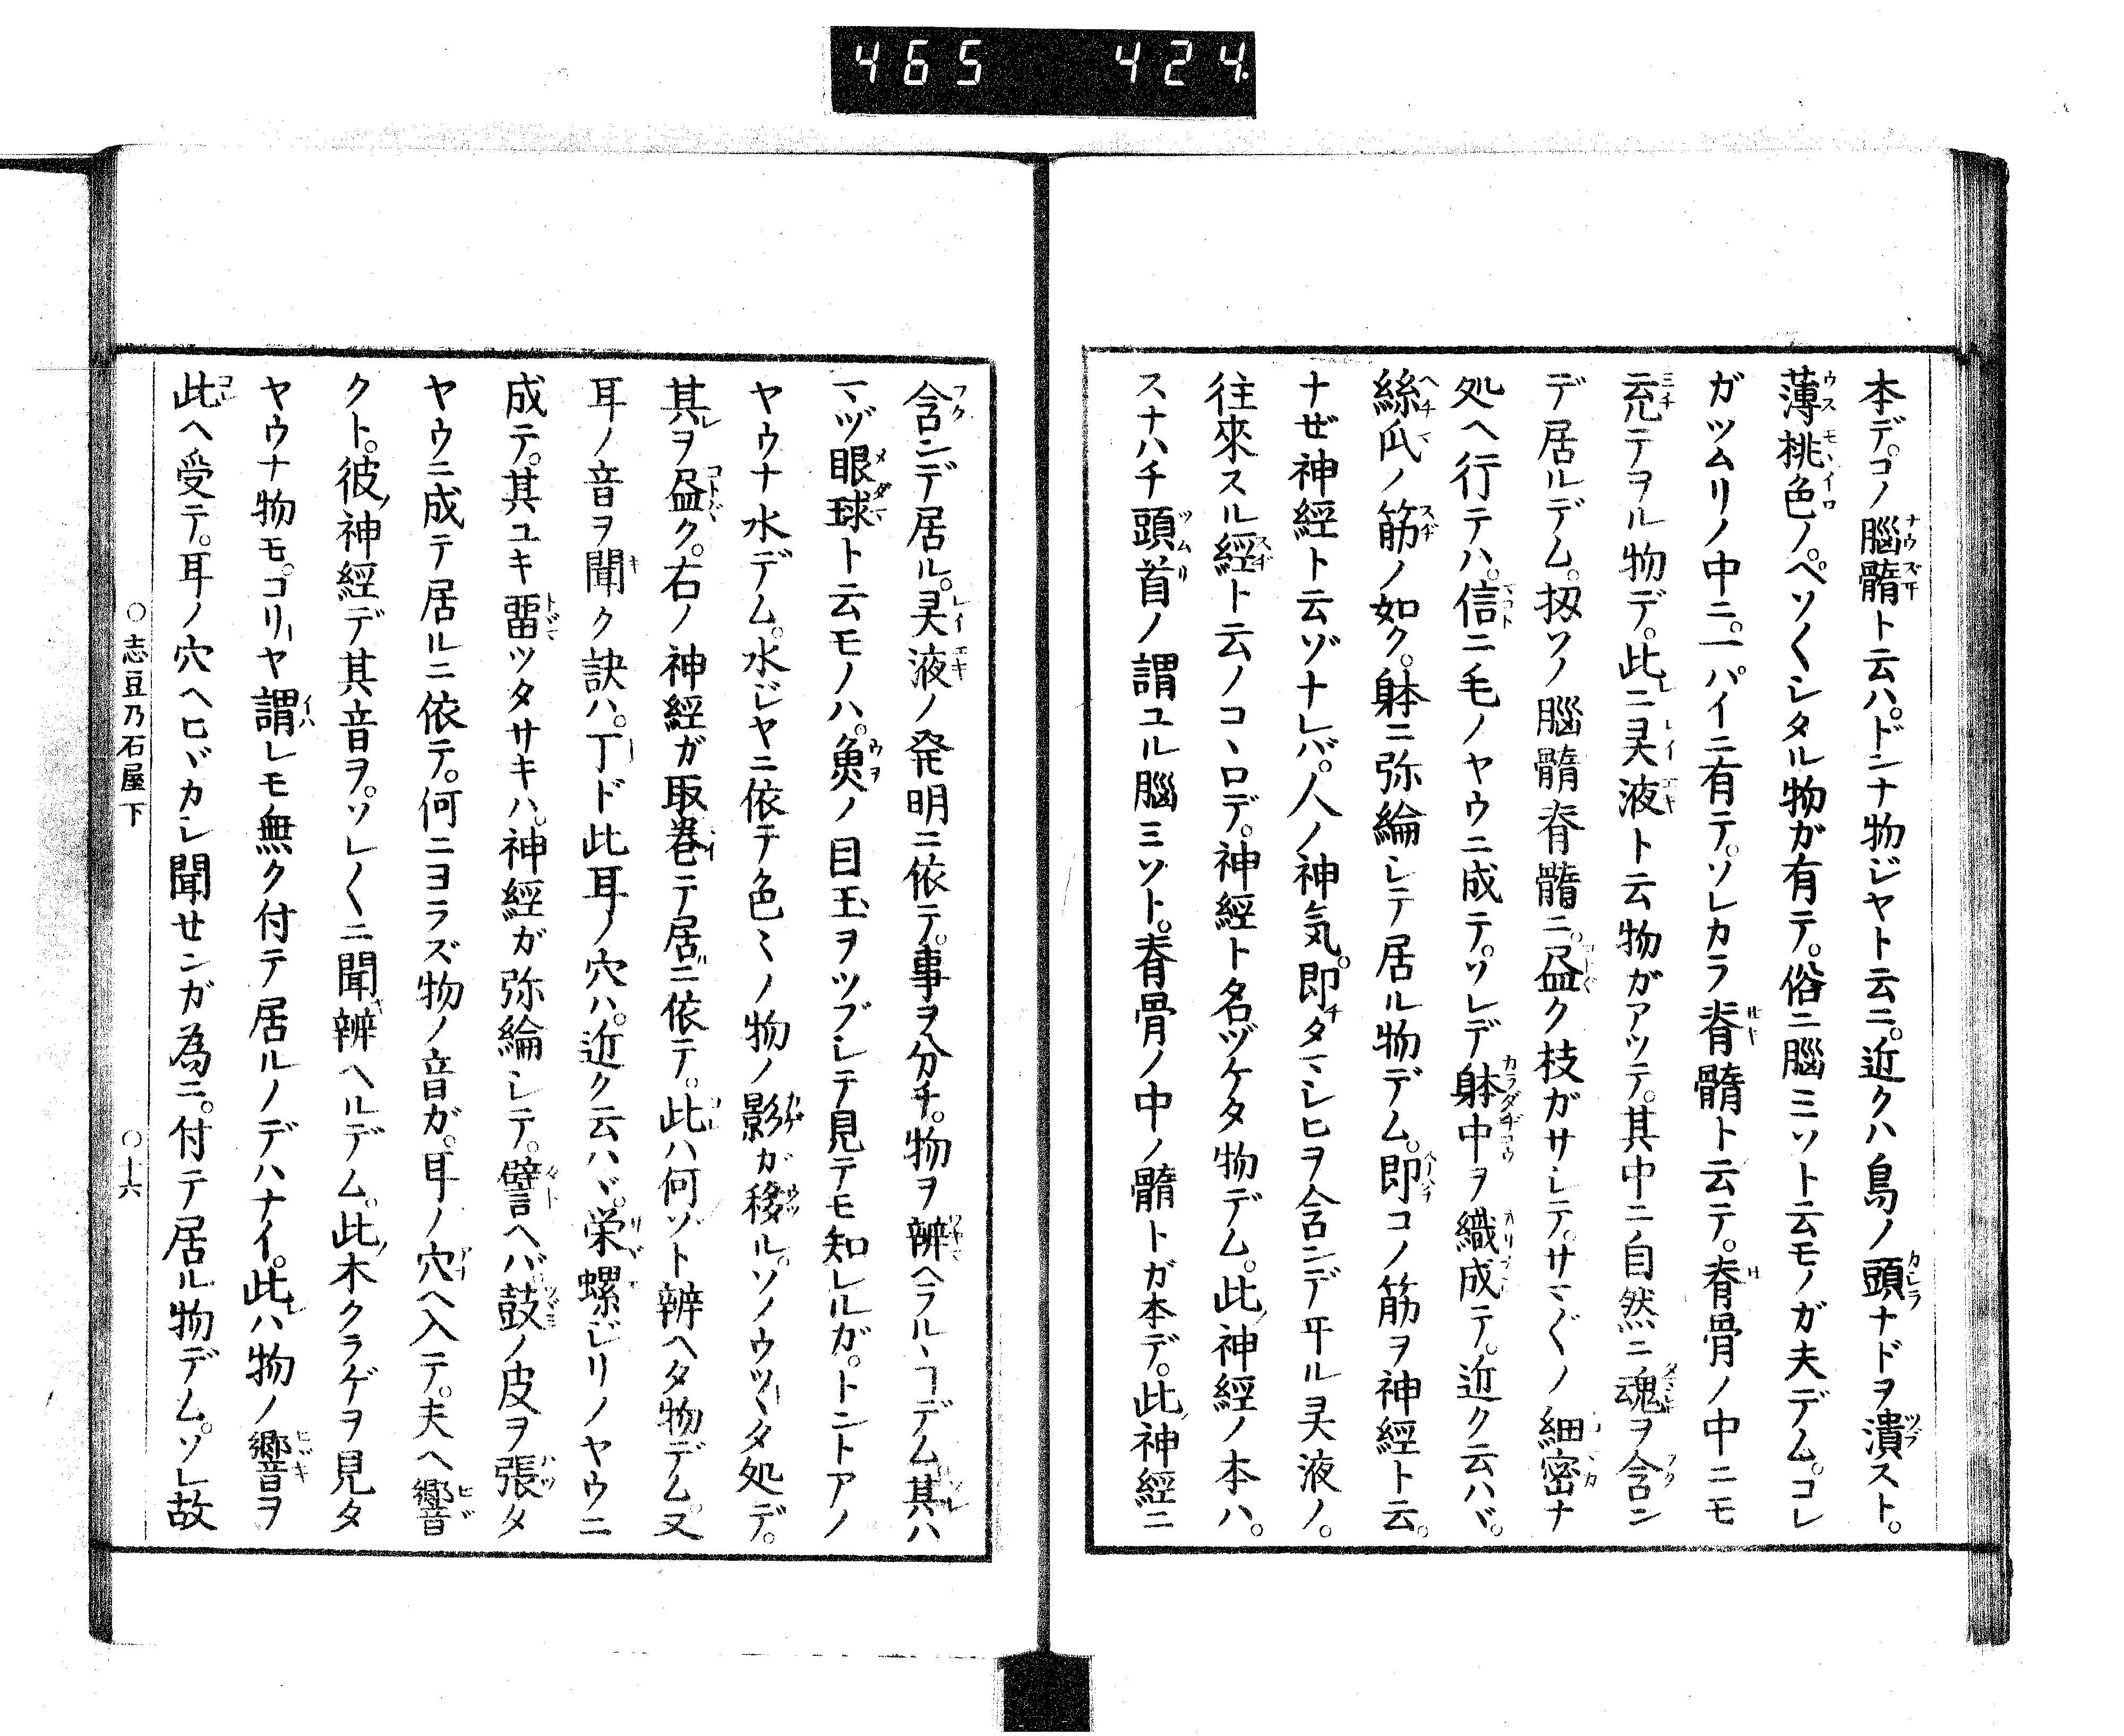 465 424
本デ。コノ腦髓ト云ハ。ドンナ物ジヤト云ニ。近クハ鳥ノ頭ナドヲ潰スト。
薄桃色ノ。ペソ〳〵シタル物ガ有テ。俗ニ腦ミソト云モノガ夫デム。コレ
ガツムリノ中ニ。一パイニ有テ。ソレカラ脊髓ト云テ。脊骨ノ中ニモ
充テヲル物デ。此ニ灵液ト云物ガアツテ。其中ニノ自然ニ魂ヲ含ン
デ居ルデム。扨ソノ腦髓脊髓ニ。尽ク枝ガサシテ。サマ〴〵ノ細密ナ
処ヘ行テハ。信ニ毛ノヤウニ成テ。ソレデ躰中ヲ織成テ。近ク云ハヾ。
絲瓜ノ筋ノ如ク。躰ニ弥綸シテ居ル物デム。即コノ筋ヲ神經ト云。
ナゼ神經ト云ゾナレバ。人ノ神気。即チタマシヒヲ含ンデヰル灵液ノ。
往來スル經ト云ノコヽロデ。神經ト名ヅケタ物デム。此神經ノ本ハ。
スナハチ頭首ノ謂ユル腦ミソト。脊骨ノ中ノ髓トガ本デ。此神經ニ
含ンデ居ル。灵液ノ発明ニ依テ。事ヲ分チ。物ヲ辨ヘラルヽヿデム其ハ
マヅ眼球ト云モノハ。魚ノ目玉ヲツブシテ見テモ知レルガ。トントアノ
ヤウナ水デム。水ジヤニ依テ色〻ノ物ノ影ガ移ル。ソノウツヽタ処デ。
其ヲ尽ク。右ノ神經ガ取巻テ居ニ依テ。此ハ何ゾト辨ヘタ物デム。又
耳ノ音ヲ聞ク訣ハ。丁ド此耳ノ穴ハ。近ク云ハヾ。栄螺ジリノヤウニ
成テ。其ユキ畄ツタサキハ。神經ガ弥綸シテ。譬ヘバ鼓ノ皮ヲ張タ
ヤウニ成テ居ルニ依テ。何ニヨラズ物ノ音ガ。耳ノ穴ヘ入テ。夫ヘ響
クト。彼神經デ其音ヲ。ソレ〳〵ニ聞辨ヘルデム。此木クラゲヲ見タ
ヤウナ物モ。コリヤ謂レモ無ク付テ居ルノデハナイ。此ハ物ノ響ヲ
此ヘ受テ。耳ノ穴ヘヒヾカシ聞センガ為ニ。付テ居ル物デム。ソレ故
○志豆乃石屋下 ○十六